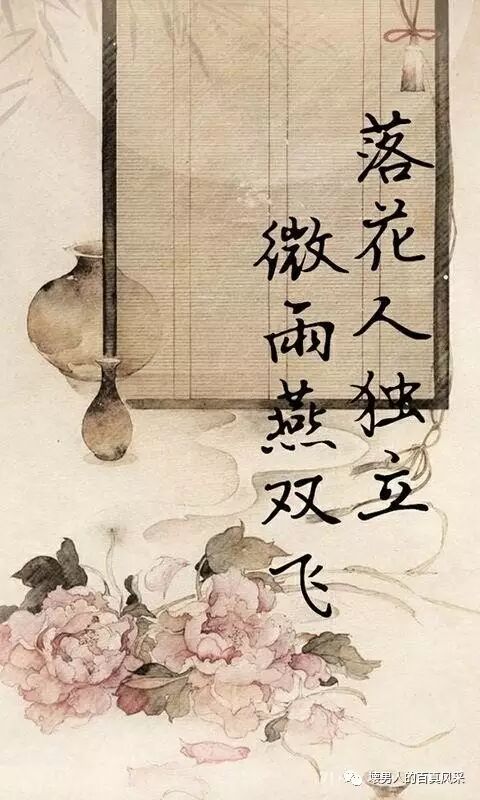 落花人独立
微雨燕双飞
壞男人的百真风采